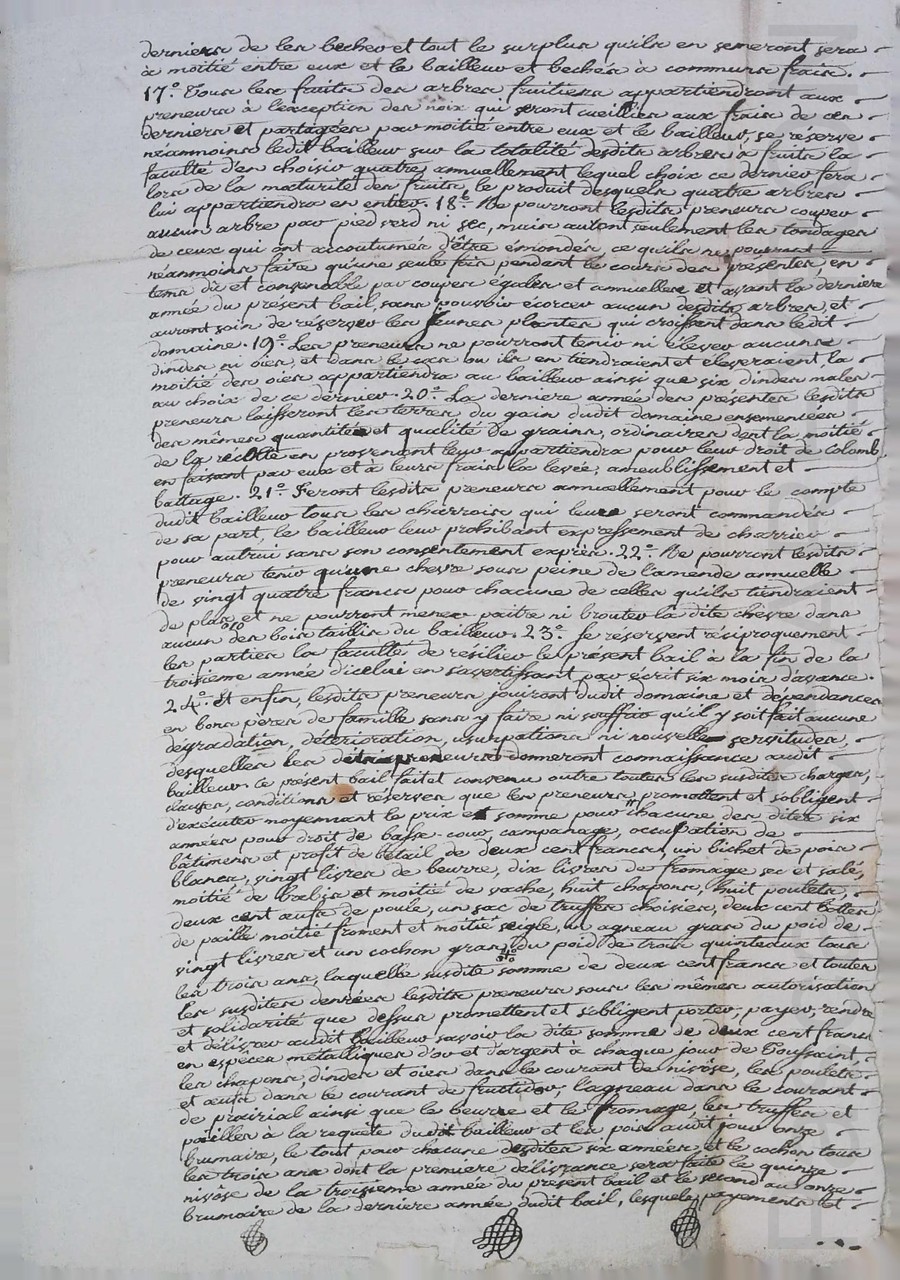 derniers de les becher et tout le surplus qu'ils en semeront sera
à moitié entre eux et le bailleur et bechés à communs frais.
17.° Tous les fruits des arbres fruitiers appartiendront aux
preneurs à l'exception des noix qui seront cueillies aux frais de ces
derniers et partagées par moitié entre eux et le bailleur, se réserve
néanmoins ledit bailleur sur la totalité desdits arbres à fruits la
faculté d'en choisir quatre annuellement lequel choix ce dernier fera
lors de la maturité des fruits, le produit desquels quatre arbres
lui appartiendra en entier. 18.° Ne pourront lesdits preneurs couper
aucun arbre par pied verd ni sec, mais autont seulement les tondages
de ceux qui ont accoutumés d'être émondés ce qu'ils ne pourront
néanmoins faire qu'une seule fois pendant le cours des présentes, en
tems dû et convenable par coupes égales et annuelles et avant la derniere
année du présent bail, sans pouvoir écorcer aucun desdits arbres, et
auront soin de réserver les jeunes plantes qui croissent dans ledit
domaine. 19.° Les preneurs ne pourront tenir ni élever aucuns
dindes ni oies, et dans le cas ou ils en tiendraient et eleveraient, la
moitié des oies appartiendra au bailleur ainsi que six dindes males
au choix de ce dernier. 20.° La derniere année des présentes lesdits
preneurs laisseront les terres du gain dudit domaine ensemencées
des mêmes quantités et qualité de grains, ordinaires dont la moitié
de la récolte en provenant leur appartiendra pour leur droit de colomb.
en faisant par eux et à leurs frais la levée, ameublissement et
battage. 21.° Feront lesdits preneurs annuellement pour le compte
dudit bailleur tous les charrois qui leurs seront commandés
de sa part, le bailleur leur prohibant expressement de charrier
pour autrui sans son consentement exprès. 22.° Ne pourront lesdits
preneurs tenir qu'une chevre sous peine de l'amende annuelle
de vingt quatre francs pour chacune de celles qu'ils tiendraient
de plus, et ne pourront mener paitre ni brouter la dite chevre dans
aucun des bois taillis du bailleur. 23.° Se réservent réciproquement
les parties la faculté de resilier le présent bail à la fin de la
troisieme année d'icelui en s'avertissant par écrit six mois d'avance.
24.° Et enfin, lesdits preneurs jouiront dudit domaine et dépendances
en bons peres de famille sans y faire ni souffrir qu'il y soit fait aucune
dégradation, détérioration, usurpations ni nouvelle servitudes,
desquelles les dits preneurs donneront connaissance audit
bailleur. Ce présent bail fait et convenu outre toutes les susdites charges,
clauses, conditions et réserves que les preneurs promettent et s'obligent
d'exécuter moyennant le prix et somme pour chacune des dites six
années pour droit de basse-cour, campanage, occupation de
bâtiments et profit de bétail de deux cent francs, un bichet de pois
blancs, vingt livres de beurre, dix livres de fromage sec et salé,
moitié de brebis et moitié de vache, huit chapons, huit poulets,
deux cent œufs de poule, un sac de truffes choisies, deux cent bottes
de paille moitié froment et moitié seigle, un agneau gras du poid de
vingt livres et un cochon gras du poid de trois quinteaux tous
les trois ans, laquelle susdite somme de deux cent francs et toutes
les susdites denrées lesdits preneurs sous les mêmes autorisation
et solidarité que dessus promettent et s'obligent porter, payer, rendre
et délivrer audit bailleur savoir la dite somme de deux cent francs
en espèces métalliques d'or et d'argent à chaque jour de Toussaint,
les chapons, dindes et oies dans le courant de nivôse, les poulets
et œufs dans le courant de fructidor, l'agneau dans le courant
de prairial ainsi que le beurre et le fromage, les truffes et
pailles à la requête dudit bailleur et les pois audit jour onze
brumaire, le tout pour chacune desdites six années, et le cochon tous
les trois ans dont la premiere délivrance sera faite le quinze
nivôse de la troisieme année du présent bail et le second au onze
brumaire de la derniere année dudit bail, lesquels payements et